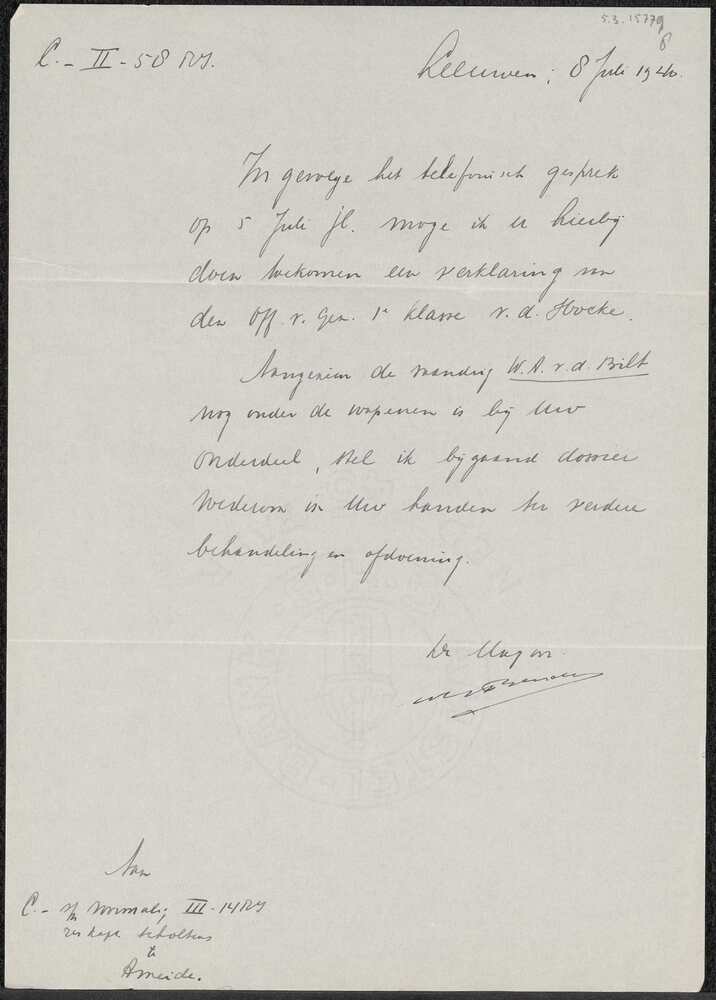 5.3.15779
8
C. - II - 58 R.I.
Leeuwen, 8 Juli 1940.
In gevolge het telefonisch gesprek
op 5 Juli jl. moge ik u hierbij
doen toekomen een verklaring van
den Off. v. Gez. 1e klasse v. d. Hoeke.
Aangezien de vaandrig W. A. v. d. Bilt
nog onder de wapenen is bij Uw
onderdeel, stel ik bijgaand dossier
wederom in Uw handen ter verdere
behandeling en afdoening.
De Majoor
Aan
C. - voormalig III - 14 R.I.
res kapt. Scholtens
te
Ameide.